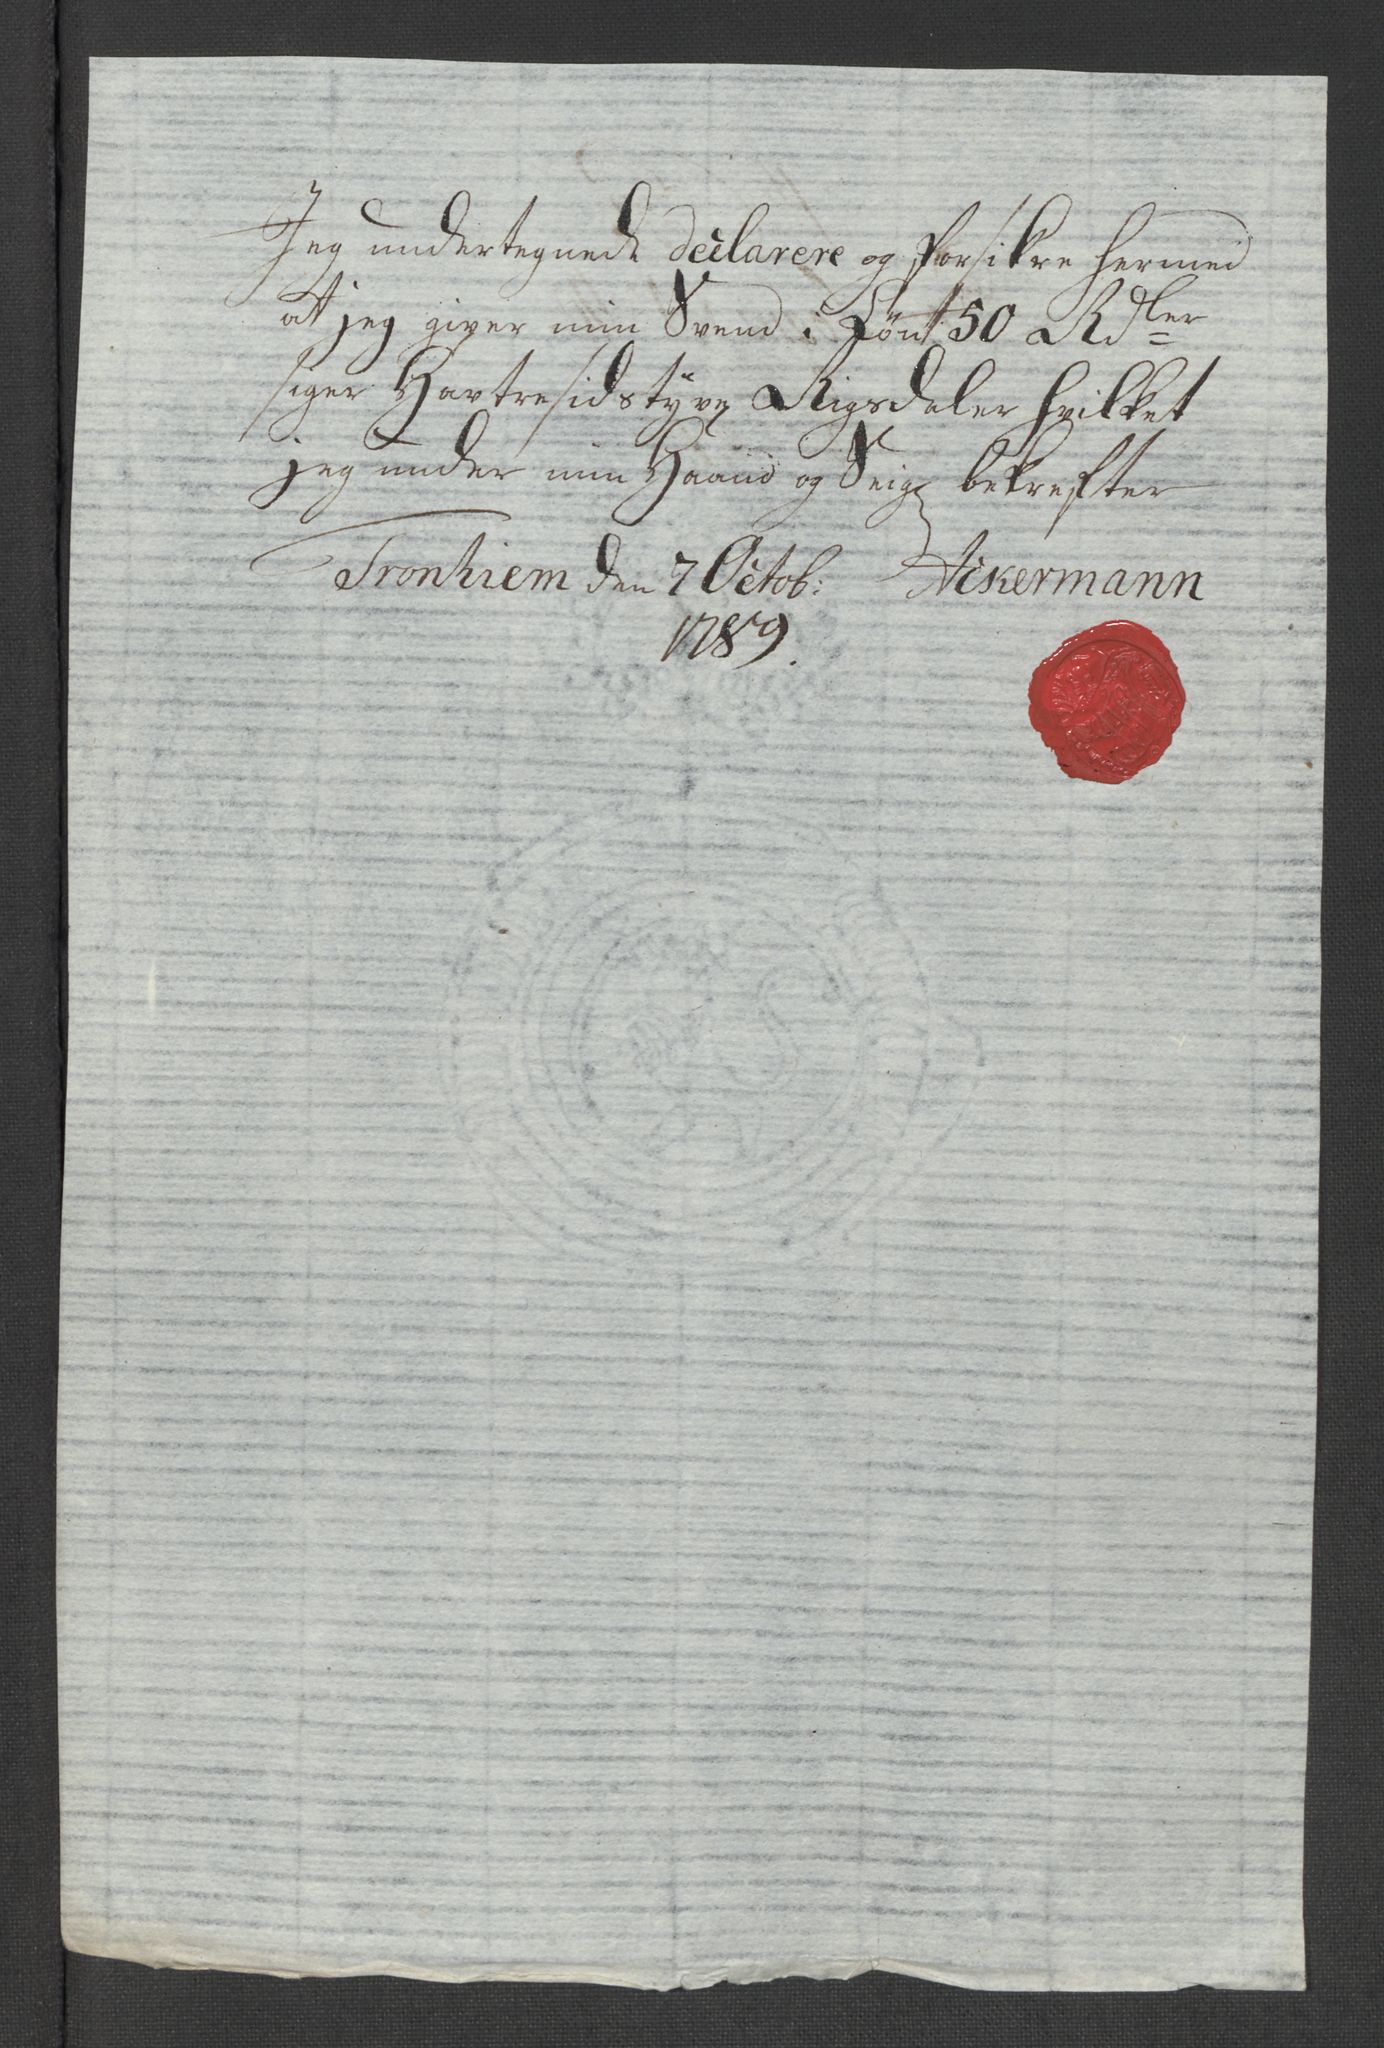 Jeg undertegnede declarere og forsikre hermed
at jeg giver min Svend i Lönt 50 Rdler
siger Havtresidstyve Rigsdaler hvilket
jeg under min Haand og Seigl bekrefter
Tronhiem den 7 Octob: Ackermann
1789.